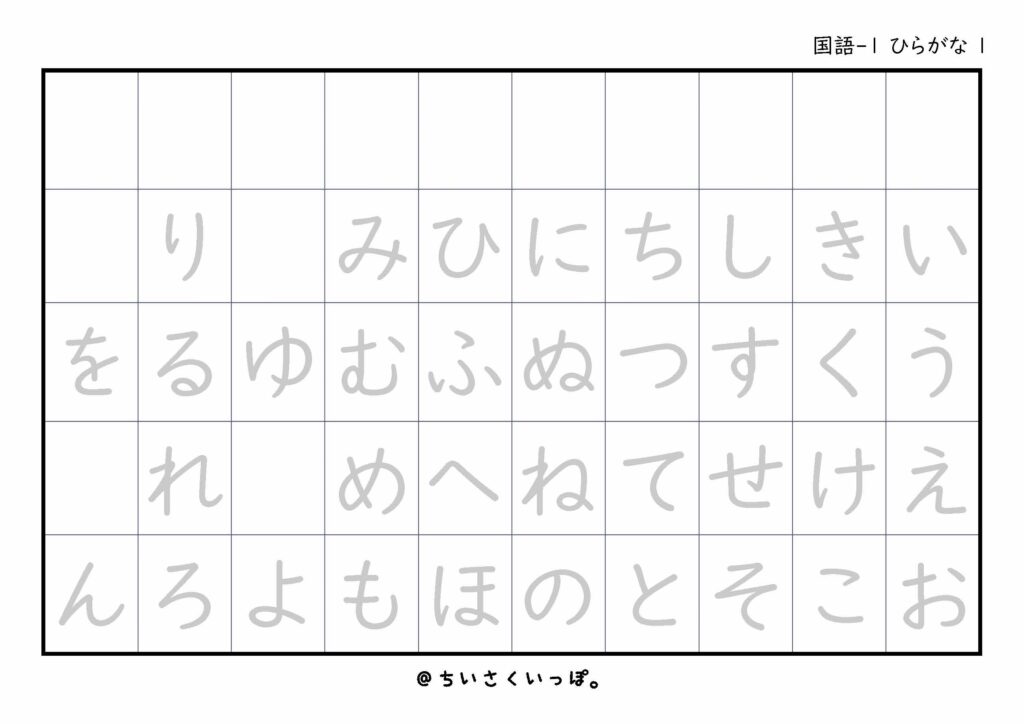 国語-1 ひらがな 1
い う え お
き く け こ
し す せ そ
ち つ て と
に ぬ ね の
ひ ふ へ ほ
み む め も
ゆ よ
り る れ ろ
を ん
@ちいさくいっぽ。